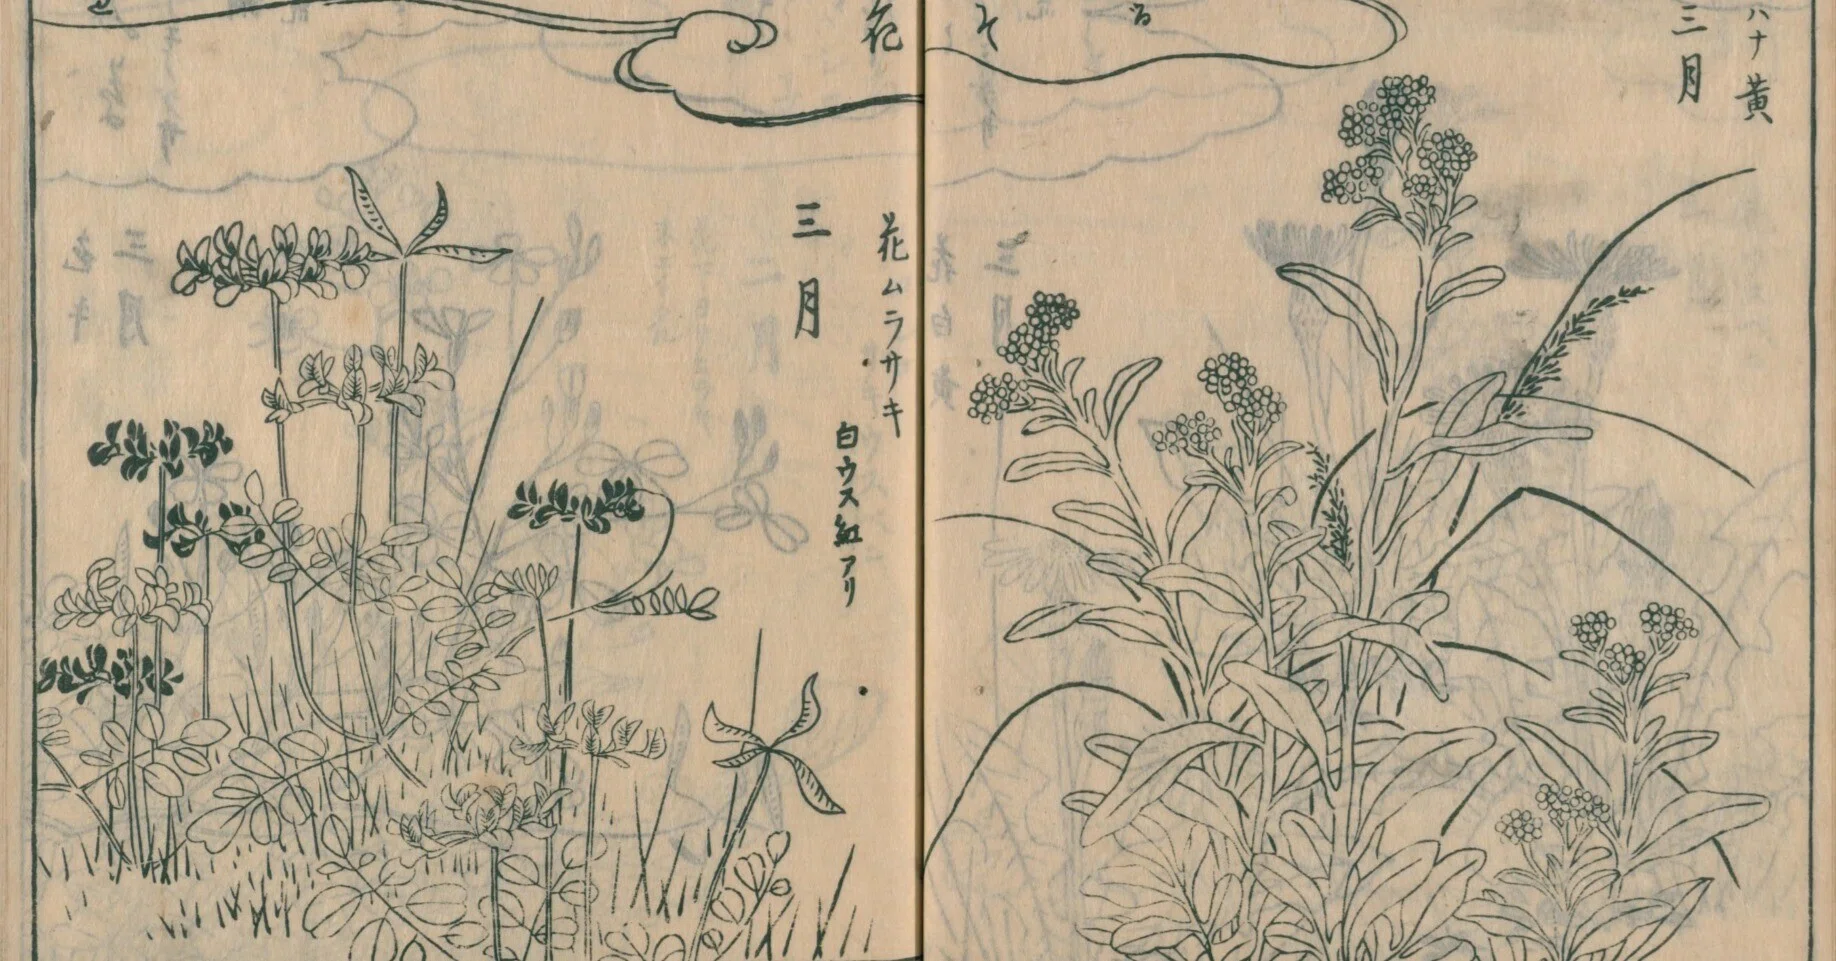 ハナ黄
三月
花
花ムラサキ
白ウス紅アリ
三月